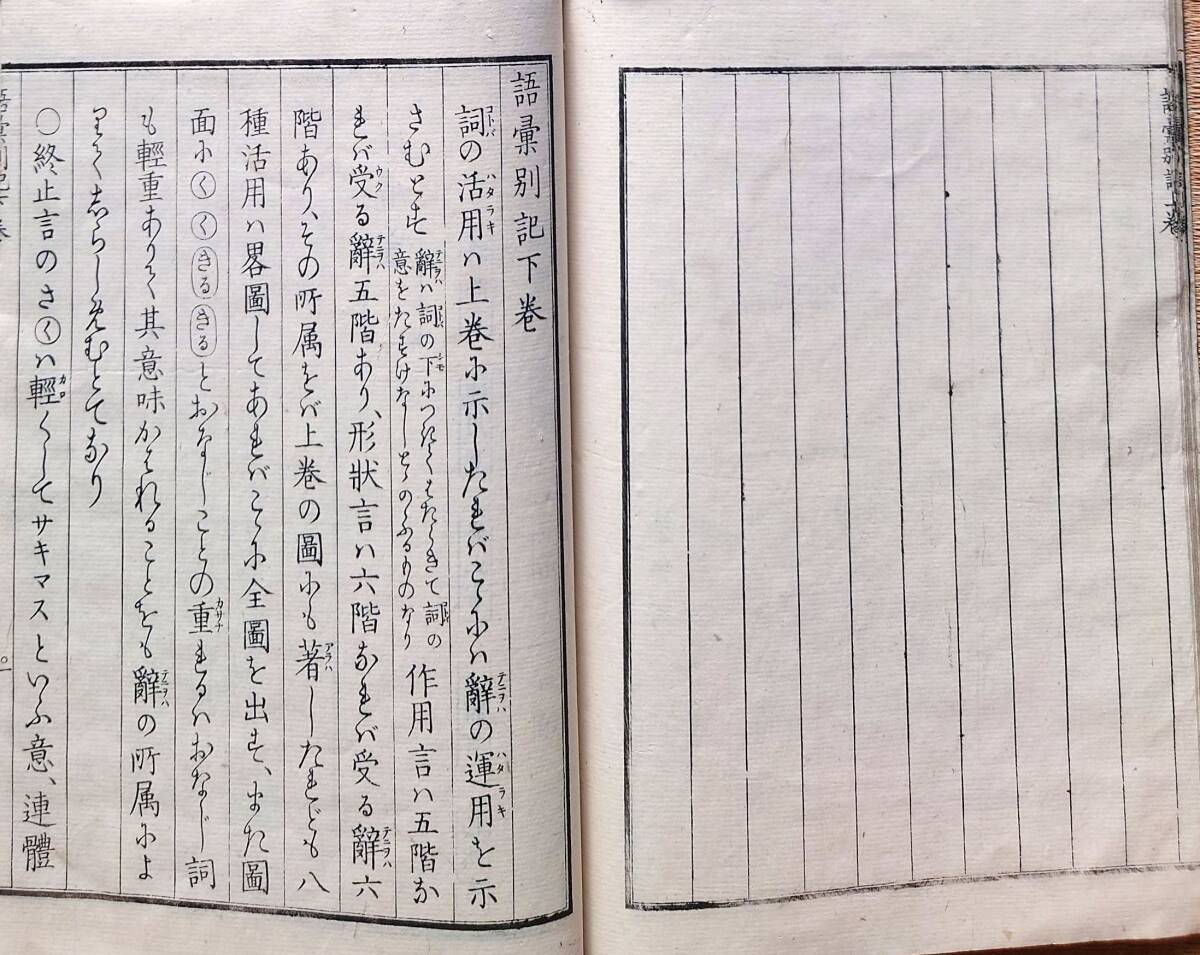 語彙別記上卷
語彙別記下卷
詞の活用ハ上卷に示したればこゝにハ辭の運用を示
さむとす 辭ハ詞の下につけてはたらきて詞の
意をたすけなしとゝのふるものなり 作用言ハ五階な
れば受る辭五階あり、形狀言ハ六階なれば受る辭六
階あり、その所属をば上卷の圖にも著したれども八
種活用ハ畧圖してあればこゝに全圖を出す、また圖
面にくくきるきるとおなじことの重れるハおなじ詞
も輕重ありて其意味かはれることをも辭の所属によ
りてしらしめむとてなり
〇終止言のさくハ輕くしてサキマスといふ意、連體